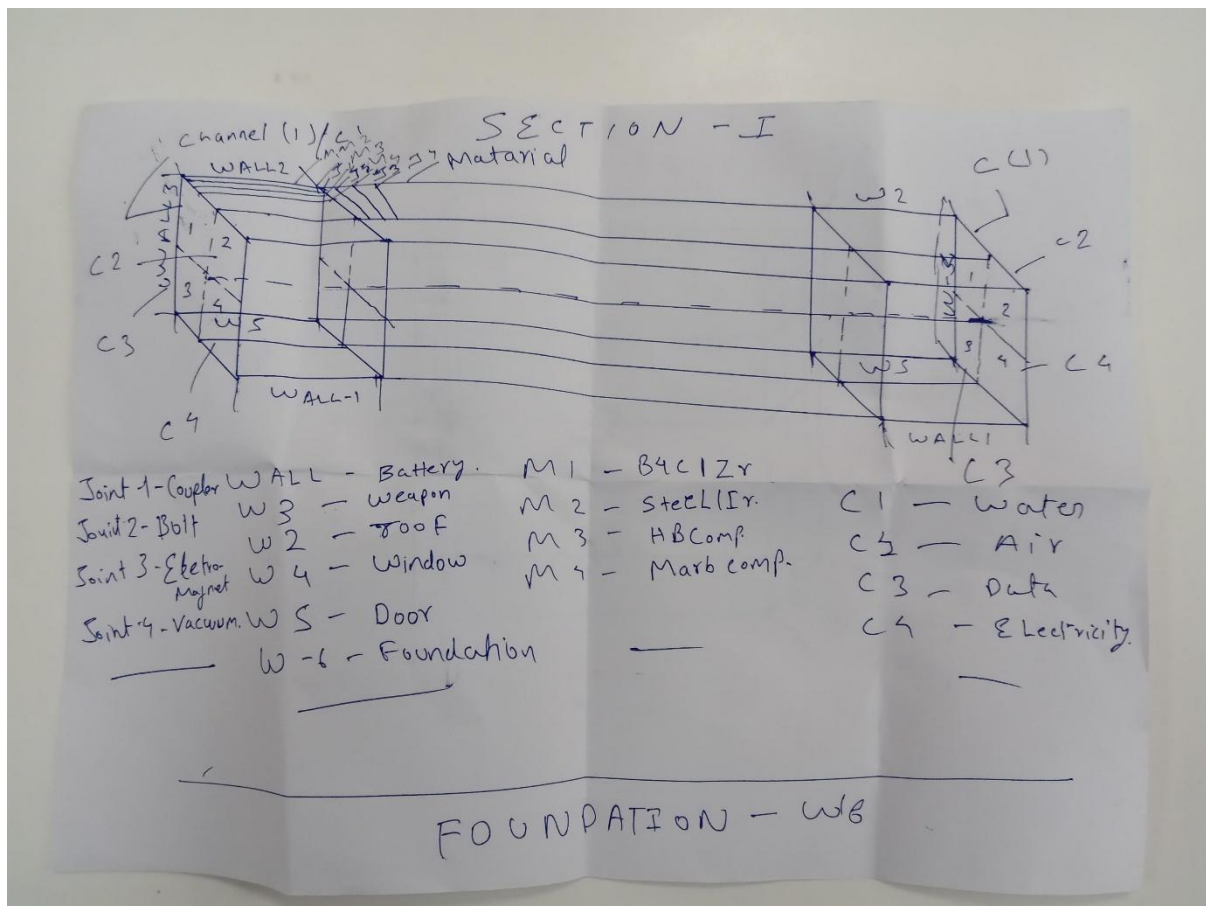 SECTION - I
Channel (1) / C1
WALL2
Matarial
WALL3
1
1 2
3 4
C2
C3
C4
W5
WALL-1
W2
C(1)
C2
1
2
3
4
W5
C4
WALL1
C3
Joint 1-Coupler
Joint 2-Bolt
Joint 3-Eletro-
Magnet
Joint-4-Vacuum.
WALL - Battery.
W3 - Weapon
W2 - roof
W4 - Window
W5 - Door
W-6 - Foundation
M1 - B4C1Zr
M2 - SteeL1Ir.
M3 - HBComp.
M4 - Marb comp.
C1 - Water
C2 - Air
C3 - Data
C4 - ELectricity.
FOUNDATION - W6